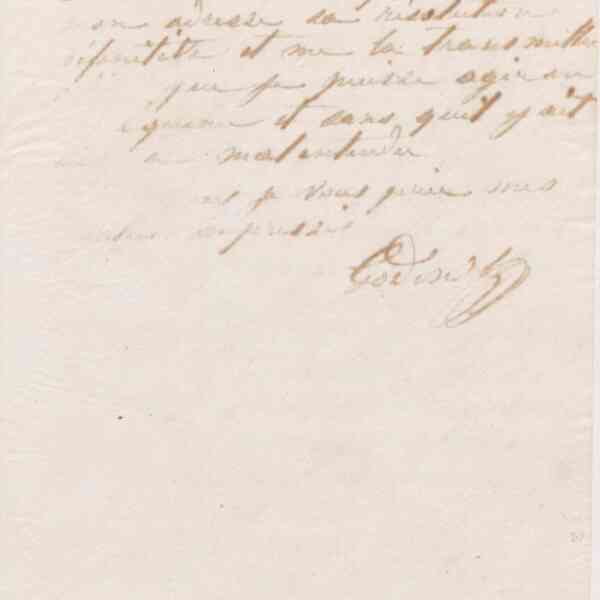 mon adresse sa résolution
définitive et me la transmettre
que je puisse agir en
et sans qu'il y ait
malentendu
je vous prie mes
empressés
Godin